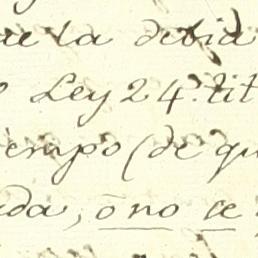 que la debia
Ley 24. tit
empo (de qu
da, ó no se